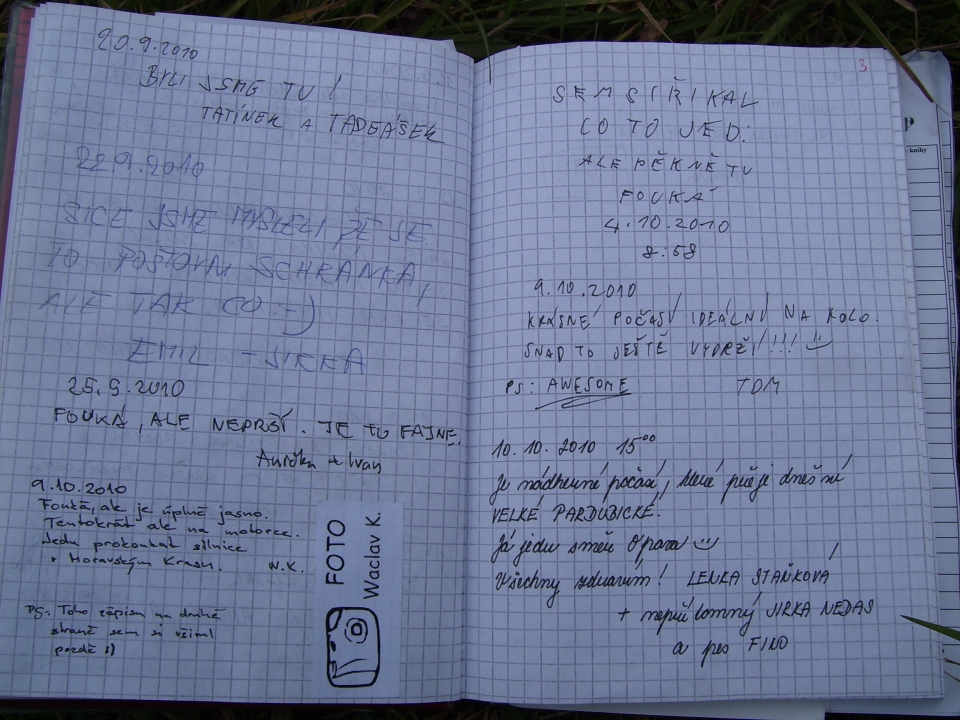 20.9.2010
BYLI JSME TU!
TATÍNEK A TADEÁŠEK
22.9.2010
SICE JSME MYSLELI ŽE JE
TO POŠTOVNÍ SCHRÁNKA,
ALE TAK CO :-)
EMIL - JIRKA
25.9.2010
FOUKÁ, ALE NEPRŠÍ. JE TU FAJNE.
Anička + Ivan
9.10.2010
Fouká, ale je úplně jasno.
Tentokrát ale na motorce.
Jedu prokoukat silnice
v Moravským Krasu. W.K.
PS: Toho zápisu na druhé
straně sem si všiml
pozdě :)
FOTO
Waclav K.
3
SEM SI ŘÍKAL
CO TO JED:
ALE PĚKNĚ TU
FOUKÁ
4.10.2010
8:58
9.10.2010
KRÁSNÉ POČASÍ IDEÁLNÍ NA KOLO.
SNAD TO JEŠTĚ VYDRŽÍ!!!
PS: AWESOME TOM
10.10.2010 15⁰⁰
Je nádherné počasí, které přeje dnešní
VELKÉ PARDUBICKÉ.
Já jedu směr Opava
Všechny zdravím! LENKA STAŇKOVÁ
+ nepřílomný JIRKA NEDAS
a pes FIDO
knihy